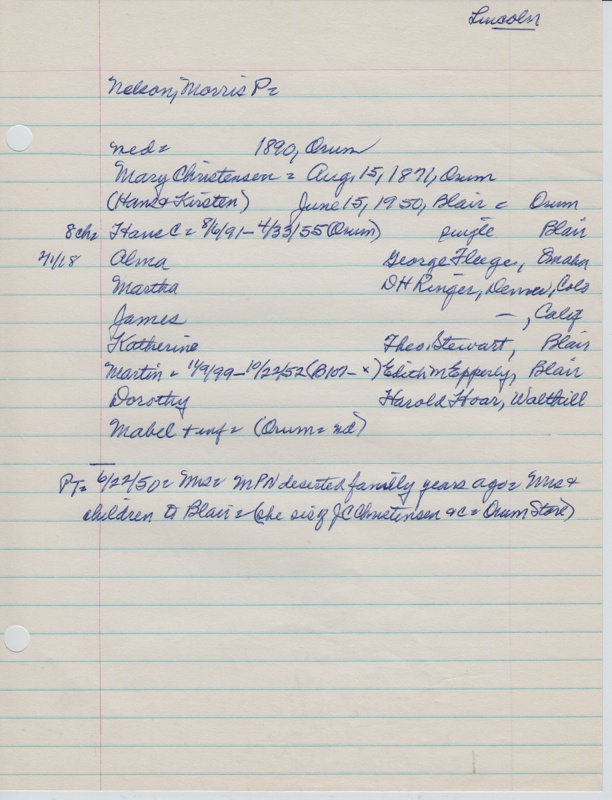 Lincoln
Nelson, Morris P =
med = 1890, Orum
Mary Christensen = Aug, 15, 1871, Orum
(Hans + Kirsten) June 15, 1950, Blair = Orum
8ch = Hans C = 8/6/91 - 4/33/55 (Orum) single Blair
Alma George Fleege, Omaha
Martha DH Ringer, Denver, Colo
James —, Calif
Katherine Theo. Stewart, Blair
Martin = 11/9/99 - 10/22/52 (B107 - x) Edith M Epperly, Blair
Dorothy Harold Hoar, Walthill
Mabel + inf = (Orum = nd)
PT = 6/22/50 = Mrs = MPN deserted family years ago = Mrs +
children to Blair = (she sis of JC Christensen & c = Orum Store)